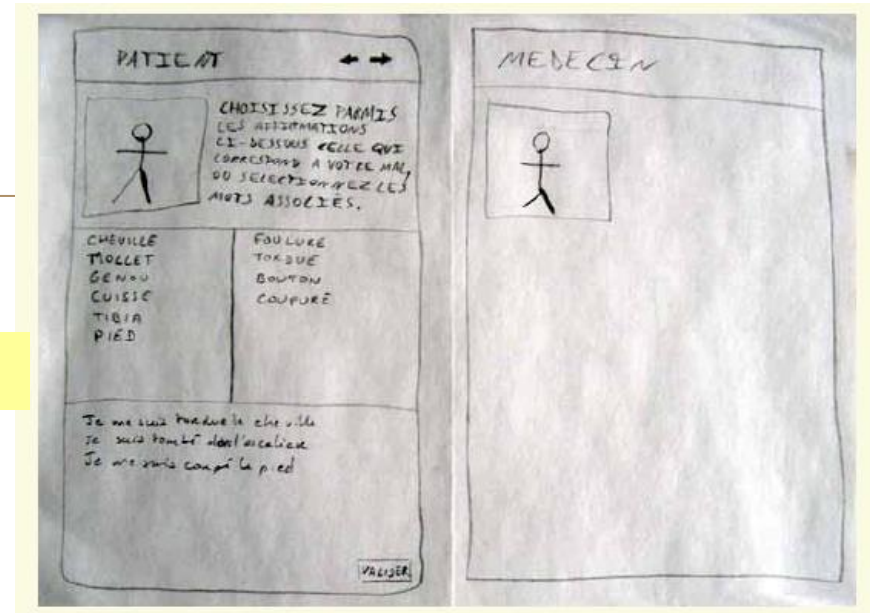 PATIENT
CHOISISSEZ PARMIS
LES AFFIRMATIONS
CI-DESSOUS CELLE QUI
CORRESPOND A VOTRE MAL,
OU SELECTIONNEZ LES
MOTS ASSOCIÉS.
CHEVILLE
MOLLET
GENOU
CUISSE
TIBIA
PIED
FOULURE
TORDUE
BOUTON
COUPURE
Je me suis tordue la cheville
Je suis tombé dans l'escalier
Je me suis coupé le pied
VALIDER
MEDECIN